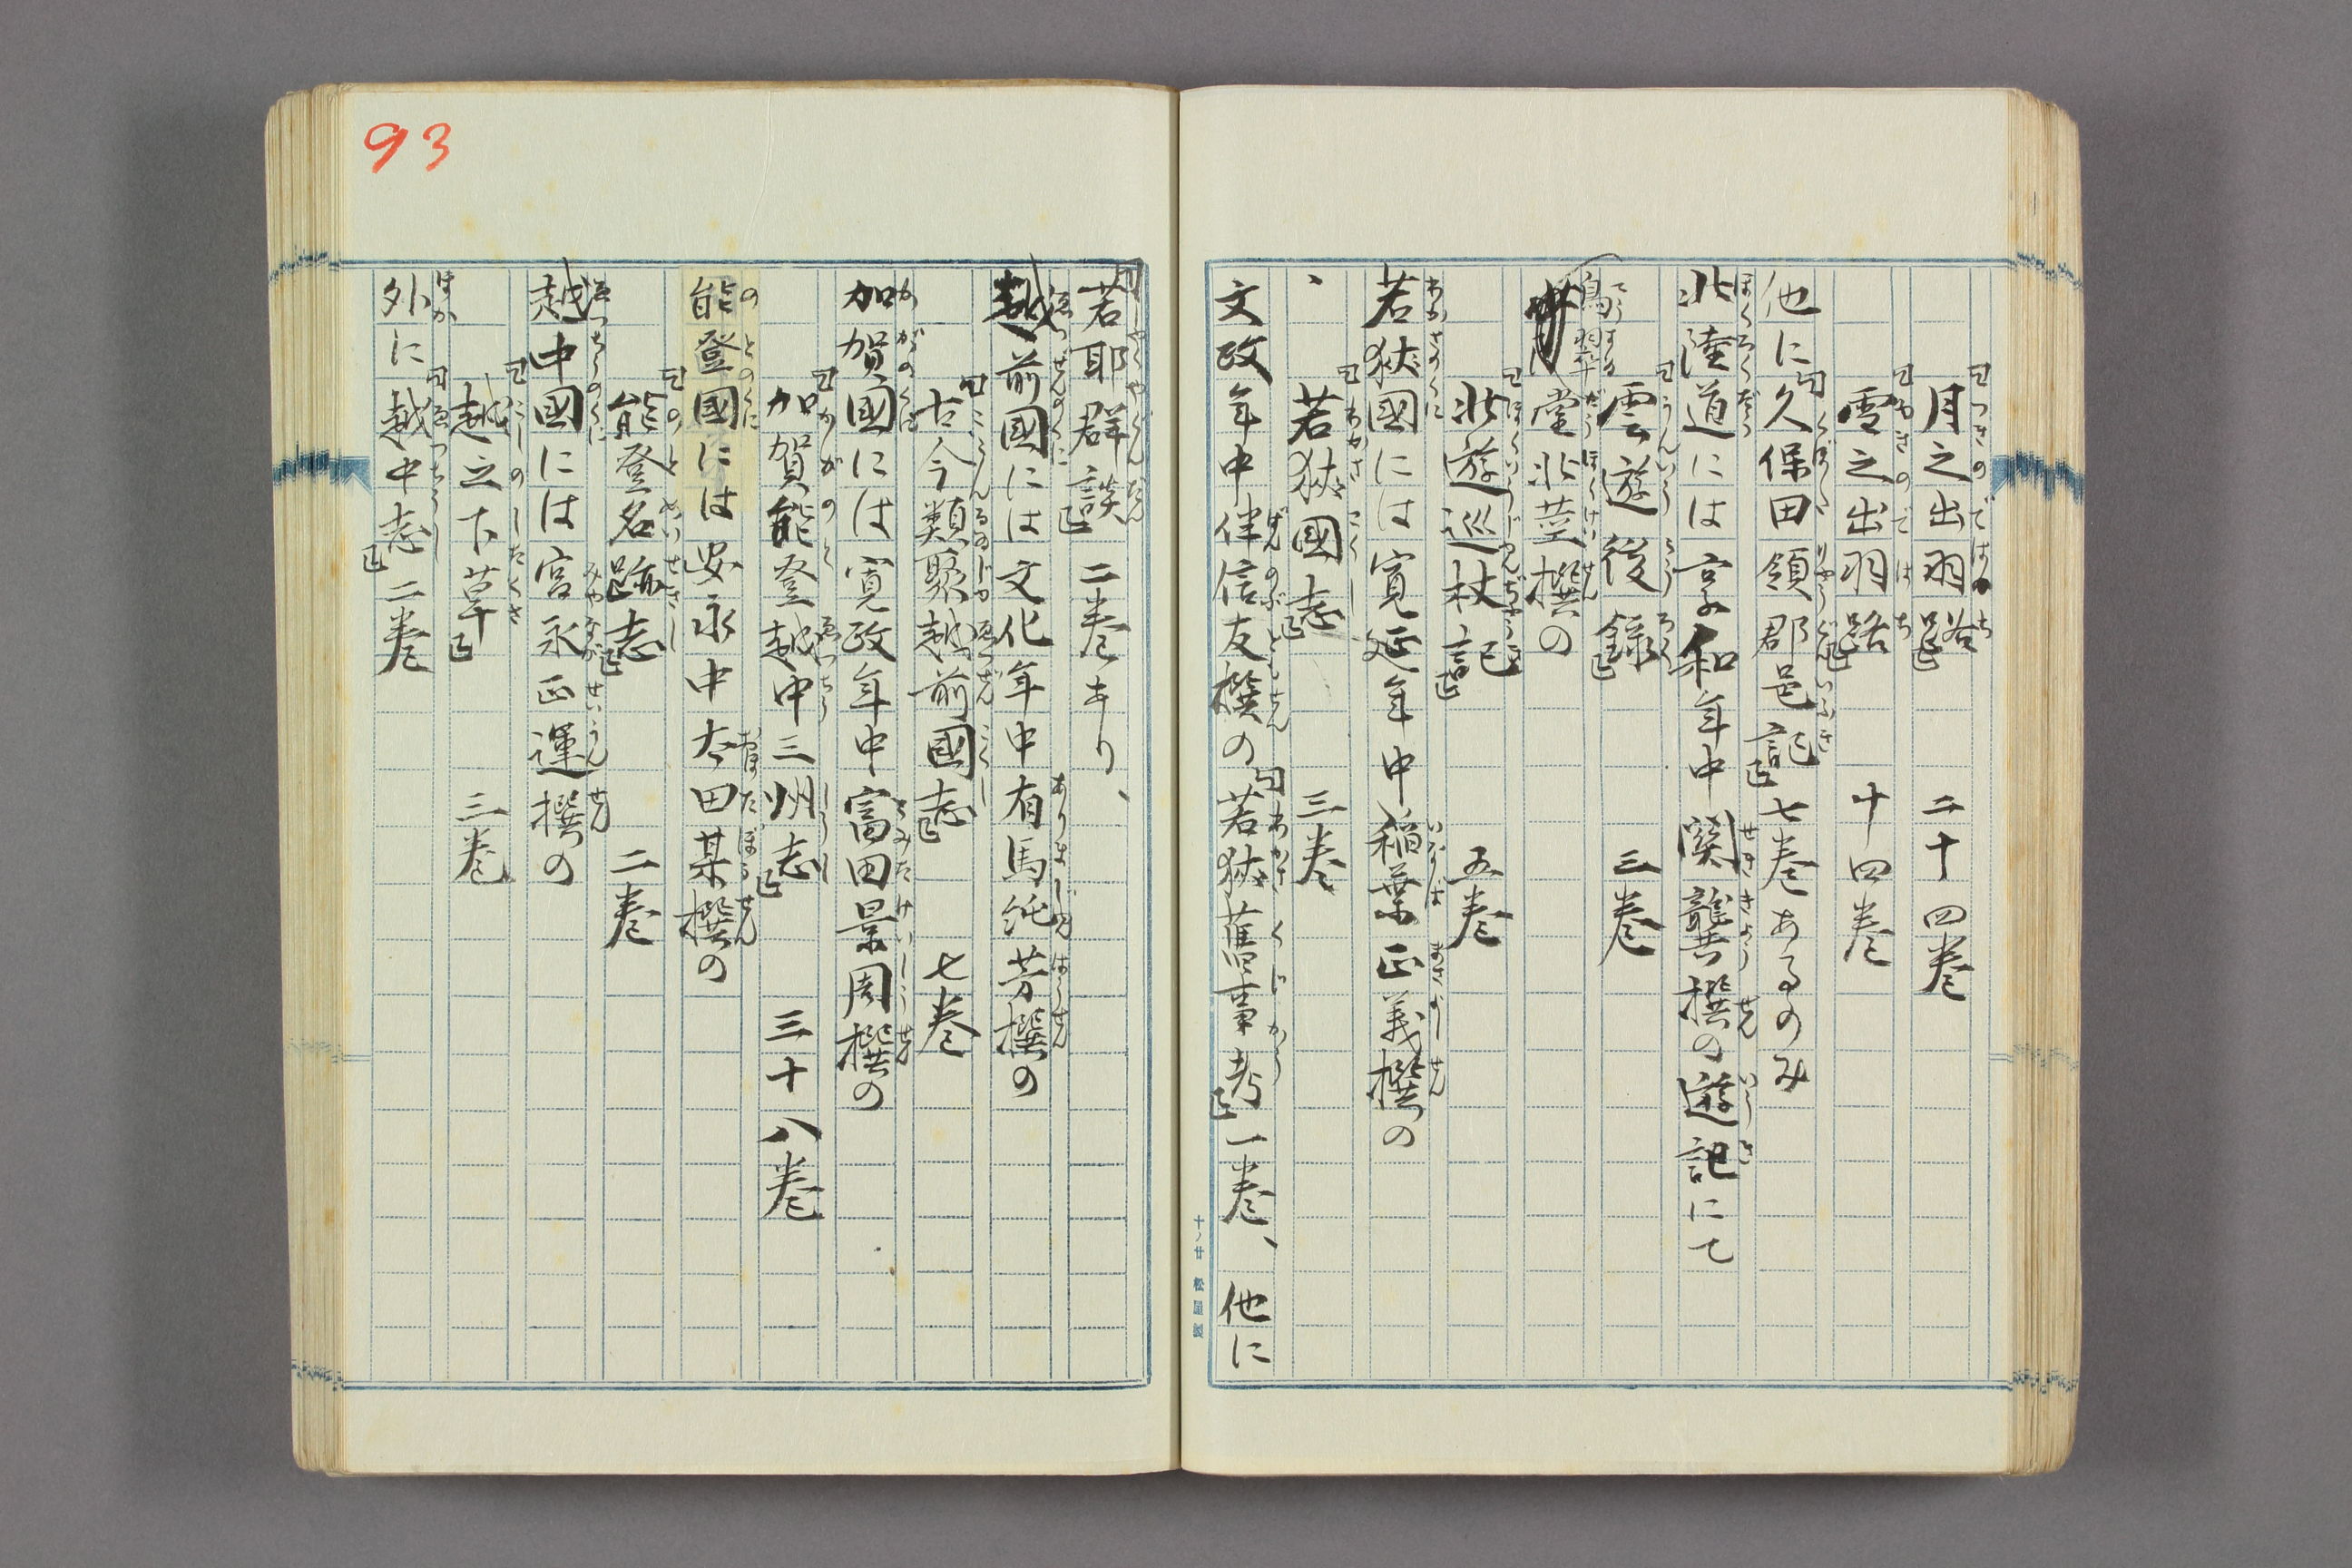 『月之出羽路』 二十四巻
『雪之出羽路』 十四巻
他に『久保田領郡邑記』七巻あるのみ
北陸道には享和年中関龔撰の遊記にて
『雲遊後録』 三巻
翠堂北茎撰の
『北遊巡杖記』 五巻
若狭國には寛延年中稲葉正義撰の
『若狭國志』 三巻
、
文政年中伴信友撰の『若狭舊事考』一巻、他に
『若耶群談』二巻あり、
越前國には文化年中有馬純芳撰の
『古今類聚越前國志』 七巻
加賀國には寛政年中富田景周撰の
『加賀能登越中三州志』 三十八巻
能登國には安永中太田某撰の
『能登名跡志』 二巻
越中國には宮永正運撰の
『越之下草』 三巻
外に『越中志』二巻
93
十ノ廿 松屋製